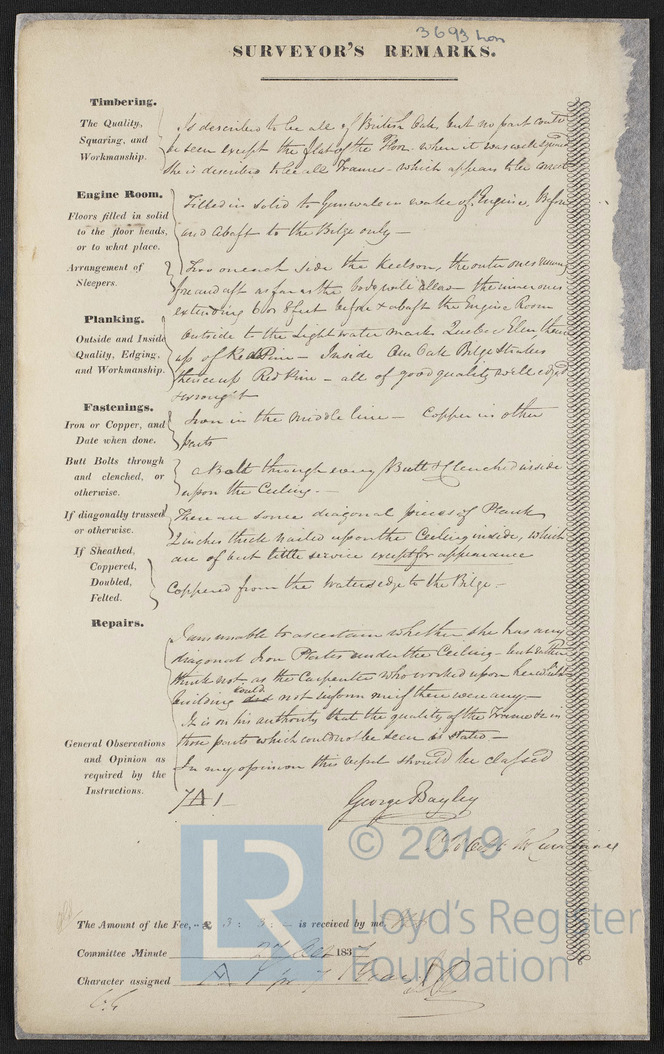 3693 Lon
SURVEYOR'S REMARKS.
Timbering.
The Quality,
Squaring, and
Workmanship.
Is described to be all of British Oak, but no part could
be seen except the flat of the Floor where it was well squared
She is described to be all Frames - which appears to be correct
Engine Room.
Floors filled in solid
to the floor heads,
or to what place.
Filled in solid to Gunwale in wake of Engine, Before
and abaft to the Bilge only -
Arrangement of
Sleepers.
Two on each side the Keelson, the outer ones running
fore and aft as far as the body will allow - the inner ones
extending 6 or 8 feet before & abaft the Engine Room
Planking.
Outside and Inside
Quality, Edging,
and Workmanship.
Outside to the light water mark Quebec Elm thence
up of Red Pine - Inside Am Oak Bilge Strakes
thence up Red Pine - all of good quality well edged
& wrought
Fastenings.
Iron or Copper, and
Date when done.
Iron in the middle line - Copper in other
parts
Butt Bolts through
and clenched, or
otherwise.
A Bolt through every Butt & Clenched inside
upon the Ceiling. -
If diagonally trussed
or otherwise.
There are some diagonal pieces of Plank
2 inches thick nailed upon the Ceiling inside, which
are of but little service except for appearance
If Sheathed,
Coppered,
Doubled,
Felted.
Coppered from the Waters edge to the Bilge -
Repairs.
I am unable to ascertain whether she has any
diagonal Iron Plates under the Ceiling - but rather
think not, as the Carpenter who worked upon her whilst
building could not inform me if there were any. -
It is on his authority that the quality of the Frame &c in
those parts which could not be seen is stated -
General Observations
and Opinion as
required by the
Instructions.
In my opinion this vessel should be classed
7 A 1
George Bayley
© 2019
Lloyd's Register
Foundation
LR
The Amount of the Fee, - £ 3 : 3 : - is received by me,
Committee Minute 183
Character assigned A 1